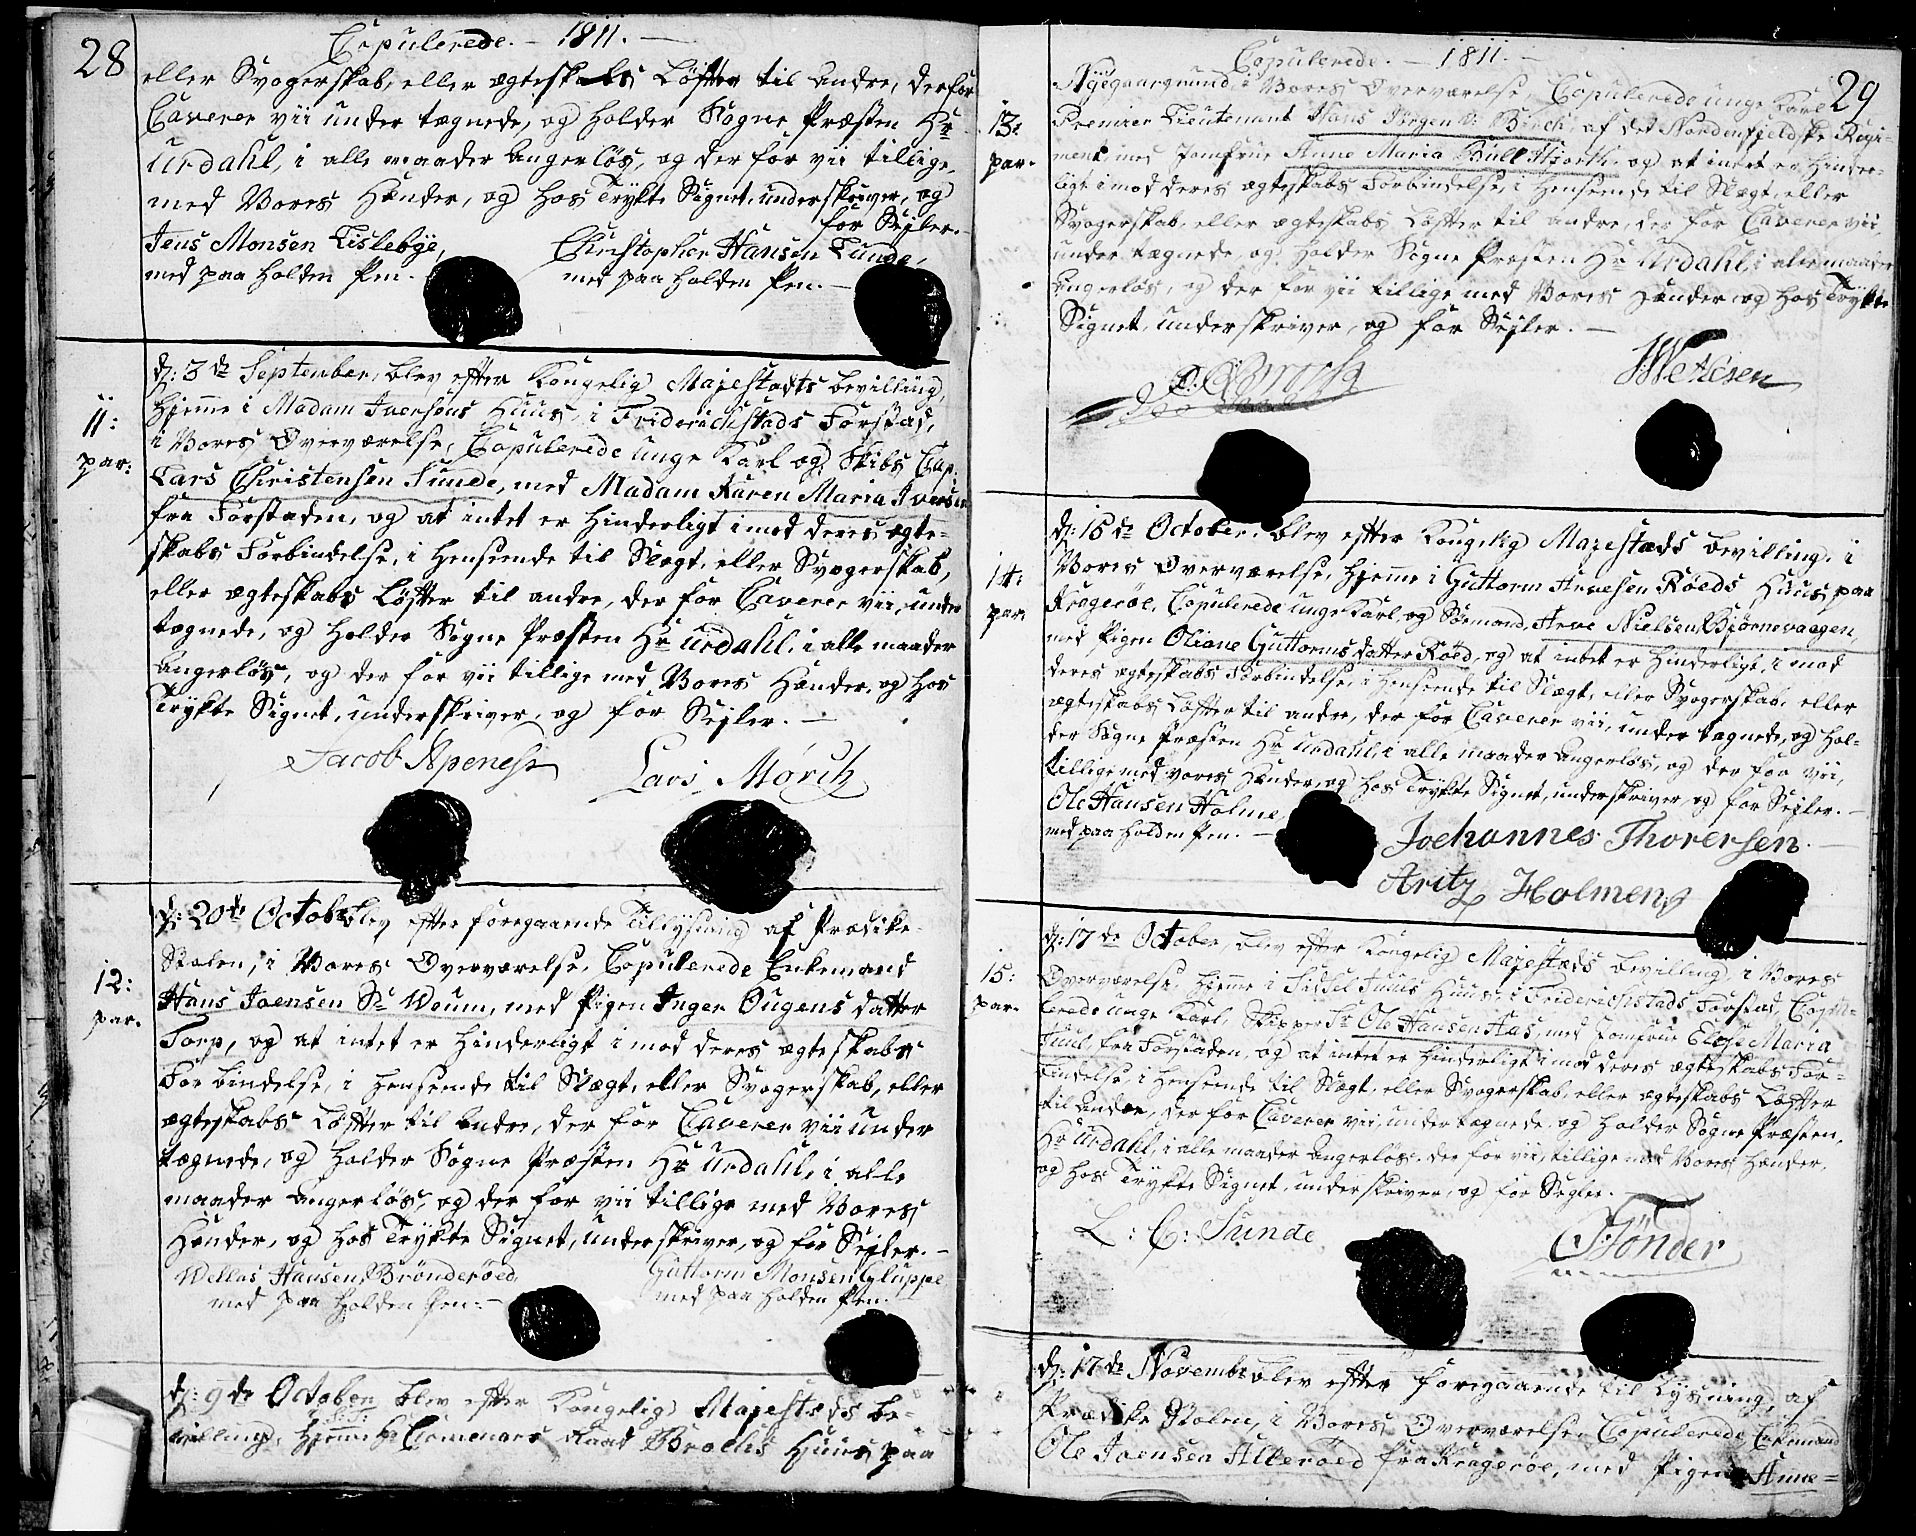 28
Copulerede. – 1811. –
eller Svogerskab, eller ægteskabs Løfter til andre, derfor
Caverer vii under tægnede, og holder Sogne Præsten Hr
Urdahl, i alle maader angerløs, og der for vii tillige,
med Vores Hænder, og hos Trykte Signet, underskriver, og
for Sejler. –
Jens Monsen Lislebye,
med paa holden Pen. –
Christopher Hansen Lunde,
med paa holden Pen. –
11:
par:
d: 3de September, blev efter Kongelig Majestædts bevilling,
Hjeme i Madam Iversens Huus, i Friderichstads Forstad,
i Vores Overværelse, Copulerede unge Karl og Skibs Cap:
Lars Christensen Sunde, med Madam Karen Maria Iversen
fra Forstaden, og at intet er Hinderligt imod deres ægte-
skabs Forbindelse, i Henseende til Slægt, eller Svogerskab,
eller ægteskabs Løfter til andre, der for Caverer vii, under
tægnede, og holder Sogne Præsten Hr Urdahl, i alle maader
angerløs, og der for vii tillige med Vores Hænder, og hos
Trykte Signet, underskriver, og for Sejler. –
Jacob Apeness
Lars Mörch
12:
par.
d: 20de October blev efter foregaaende Tillysning af Prædike-
Stolen, i Vores Overværelse, Copulerede Enkemand
Hans Joensen Sr Woum, med Pigen Inger Ougens datter
Torp, og at intet er Hinderligt imod deres ægteskabs
For bindelse, i Henseende til Slægt, eller Svogerskab, eller
ægteskabs Løfter til andre, der for Caverer vii under
tægnede, og holder Sogne Præsten Hr Urdahl, i alle
maader angerløs, og der for vii tillige med Vores
Hænder, og hos Trykte Signet, underskriver, og for Sejler. –
Hansen Brönderöed,
med paa holden Pen: –
Guttorm Monsen Gluppe
med paa holden Pen.
d: 9de October blev efter Kongelig Majestæds be-
villing, Hjeme Hr Raad Huus paa
Copulerede. – 1811. –
29
Nyegaardgrund, i Vores Overværelse, Copulerede unge Karl
13:
par.
Premier Lieutenant Hans Jørgen Birch, af det Nordenfjeldske Regi-
ment med Jomfrue Anne Maria Bull Hiorth, og at intet er Hinder-
ligt imod deres ægteskabs Forbindelse, i Henseende til Slægt, eller
Svogerskab, eller ægteskabs Løfter til andre, der for Caverer vii,
under tægnede, og holder Sogne Præsten Hr Urdahl, i alle maader
angerløs, og der for vii tillige med Vores Hænder, og hos Trykte
Signet, underskriver, og for Sejler. –
14:
par.
d: 15de October, blev efter Kongelig Majestæds bevilling, i
Vores Overværelse, Hjeme i Guttorm Arvesen Röeds Huus paa
Kragerøe, Copulerede unge Karl, og Sömand, Arve Nielsen Bjørnevaagen,
med Pigen Oliane Guttorms datter Röed, og at intet er Hinderligt, i mod
deres ægteskabs Forbindelse, i Henseende til Slægt, eller Svogerskab, eller
ægteskabs Løfter til andre, der for Caverer vii, under tægnede, og hol-
der Sogne Præsten Hr Urdahl, i alle maader angerløs, og der for vii,
tillige med vores Hænder, og hos Trykte Signet, underskriver, og for Sejler. –
Ole Hansen Holme
med paa holden Pen. –
Joehannes Thorersen. –
Aritz Holmen
15:
par.
d: 17de October, blev efter Kongelig Majestæds bevilling i Vores
Overværelse, Hjeme i Juuls Huus, i Friderichstads Forstad, Copu-
lerede unge Karl, Skipper Sr Ole Hansen Aas, med Jomfrue Maria
Juul, fra Forstaden, og at intet er Hinderligt imod deres ægteskabs For-
bindelse, i Henseende til Slægt, eller Svogerskab, eller ægteskabs Løfter
til andre, der for Caverer vii, under tægnede, og holder Sogne Præsten,
Hr Urdahl, i alle maader angerløs, der for vii, tillige med Vores Hænder,
og hos Trykte Signet, underskriver, og for Sejler.
L: C: Sunde
Tönder
d: 17de November blev efter foregaaende til Lysning, af
Prædike Stolen, i Vores Overværelse Copulerede Enkemand
Ole Joensen Alleröed fra Kragerøe, med Pigen Anne =